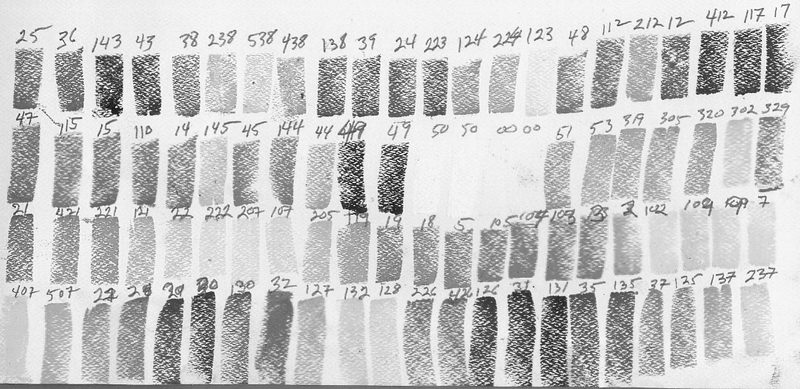 25 36 143 43 38 238 538 438 138 39 24 223 124 224 123 48 112 212 12 412 117 17
47 115 15 110 14 145 45 144 44 49 50 50 00 00 51 53 319 305 320 302 329
21 421 221 121 22 222 207 107 205 19 18 5 105 104 103 3 102 109 7
407 507 29 30 130 32 127 132 128 226 126 31 131 35 135 37 125 137 237